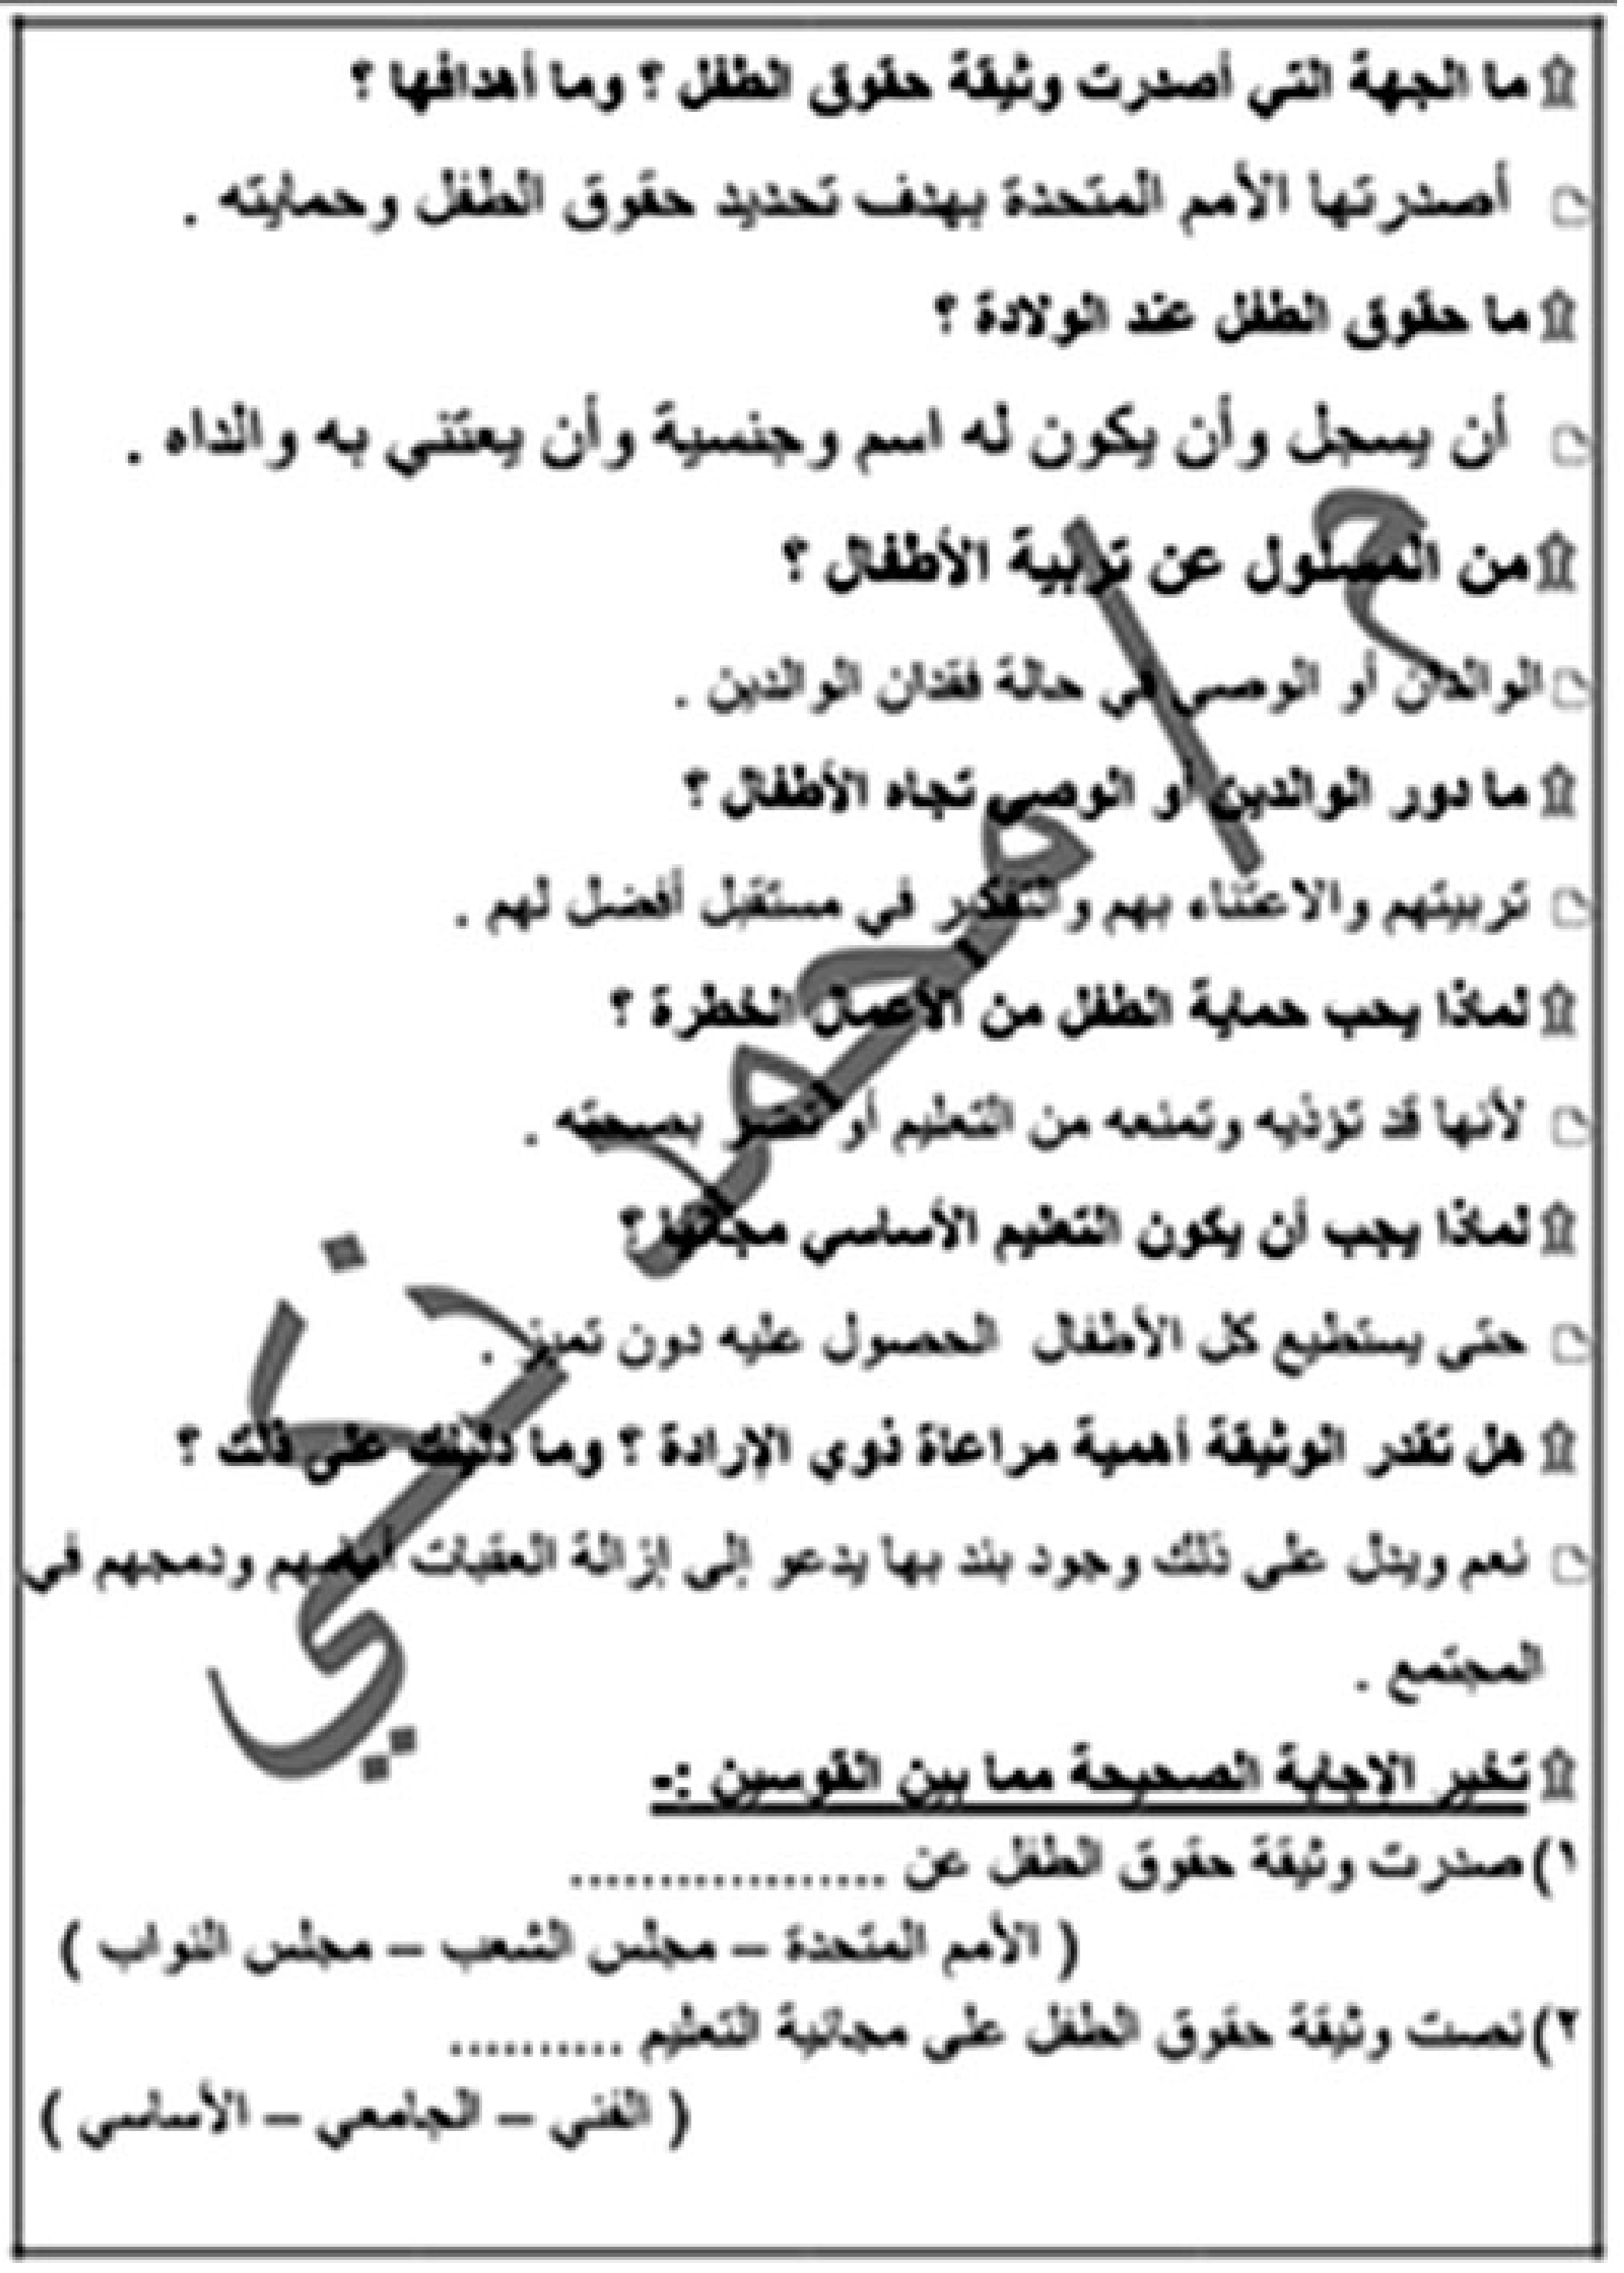 ما الجهة التي أصدرت وثيقة حقوق الطفل ؟ وما أهدافها ؟
أصدرتها الأمم المتحدة بهدف تحديد حقوق الطفل وحمايته .
ما حقوق الطفل عند الولادة ؟
أن يسجل وأن يكون له اسم وجنسية وأن يعتني به والداه .
من المسئول عن تربية الأطفال ؟
الوالدان أو الوصي في حالة فقدان الوالدين .
ما دور الوالدين أو الوصي تجاه الأطفال ؟
تربيتهم والاعتناء بهم والتفكير في مستقبل أفضل لهم .
لماذا يحب حماية الطفل من الأعمال الخطرة ؟
لأنها قد تؤذيه وتمنعه من التعليم أو تضر بصحته .
لماذا يجب أن يكون التعليم الأساسي مجانيا ؟
حتى يستطيع كل الأطفال الحصول عليه دون تميز .
هل تقدر الوثيقة أهمية مراعاة ذوي الإرادة ؟ وما دليلك على ذلك ؟
نعم ويدل على ذلك وجود بند بها يدعو إلى إزالة العقبات أمامهم ودمجهم في
المجتمع .
تخير الاجابة الصحيحة مما بين القوسين :-
١) صدرت وثيقة حقوق الطفل عن ..................
( الأمم المتحدة – مجلس الشعب – مجلس النواب )
٢) نصت وثيقة حقوق الطفل على مجانية التعليم ..........
( الفني – الجامعي – الأساسي )